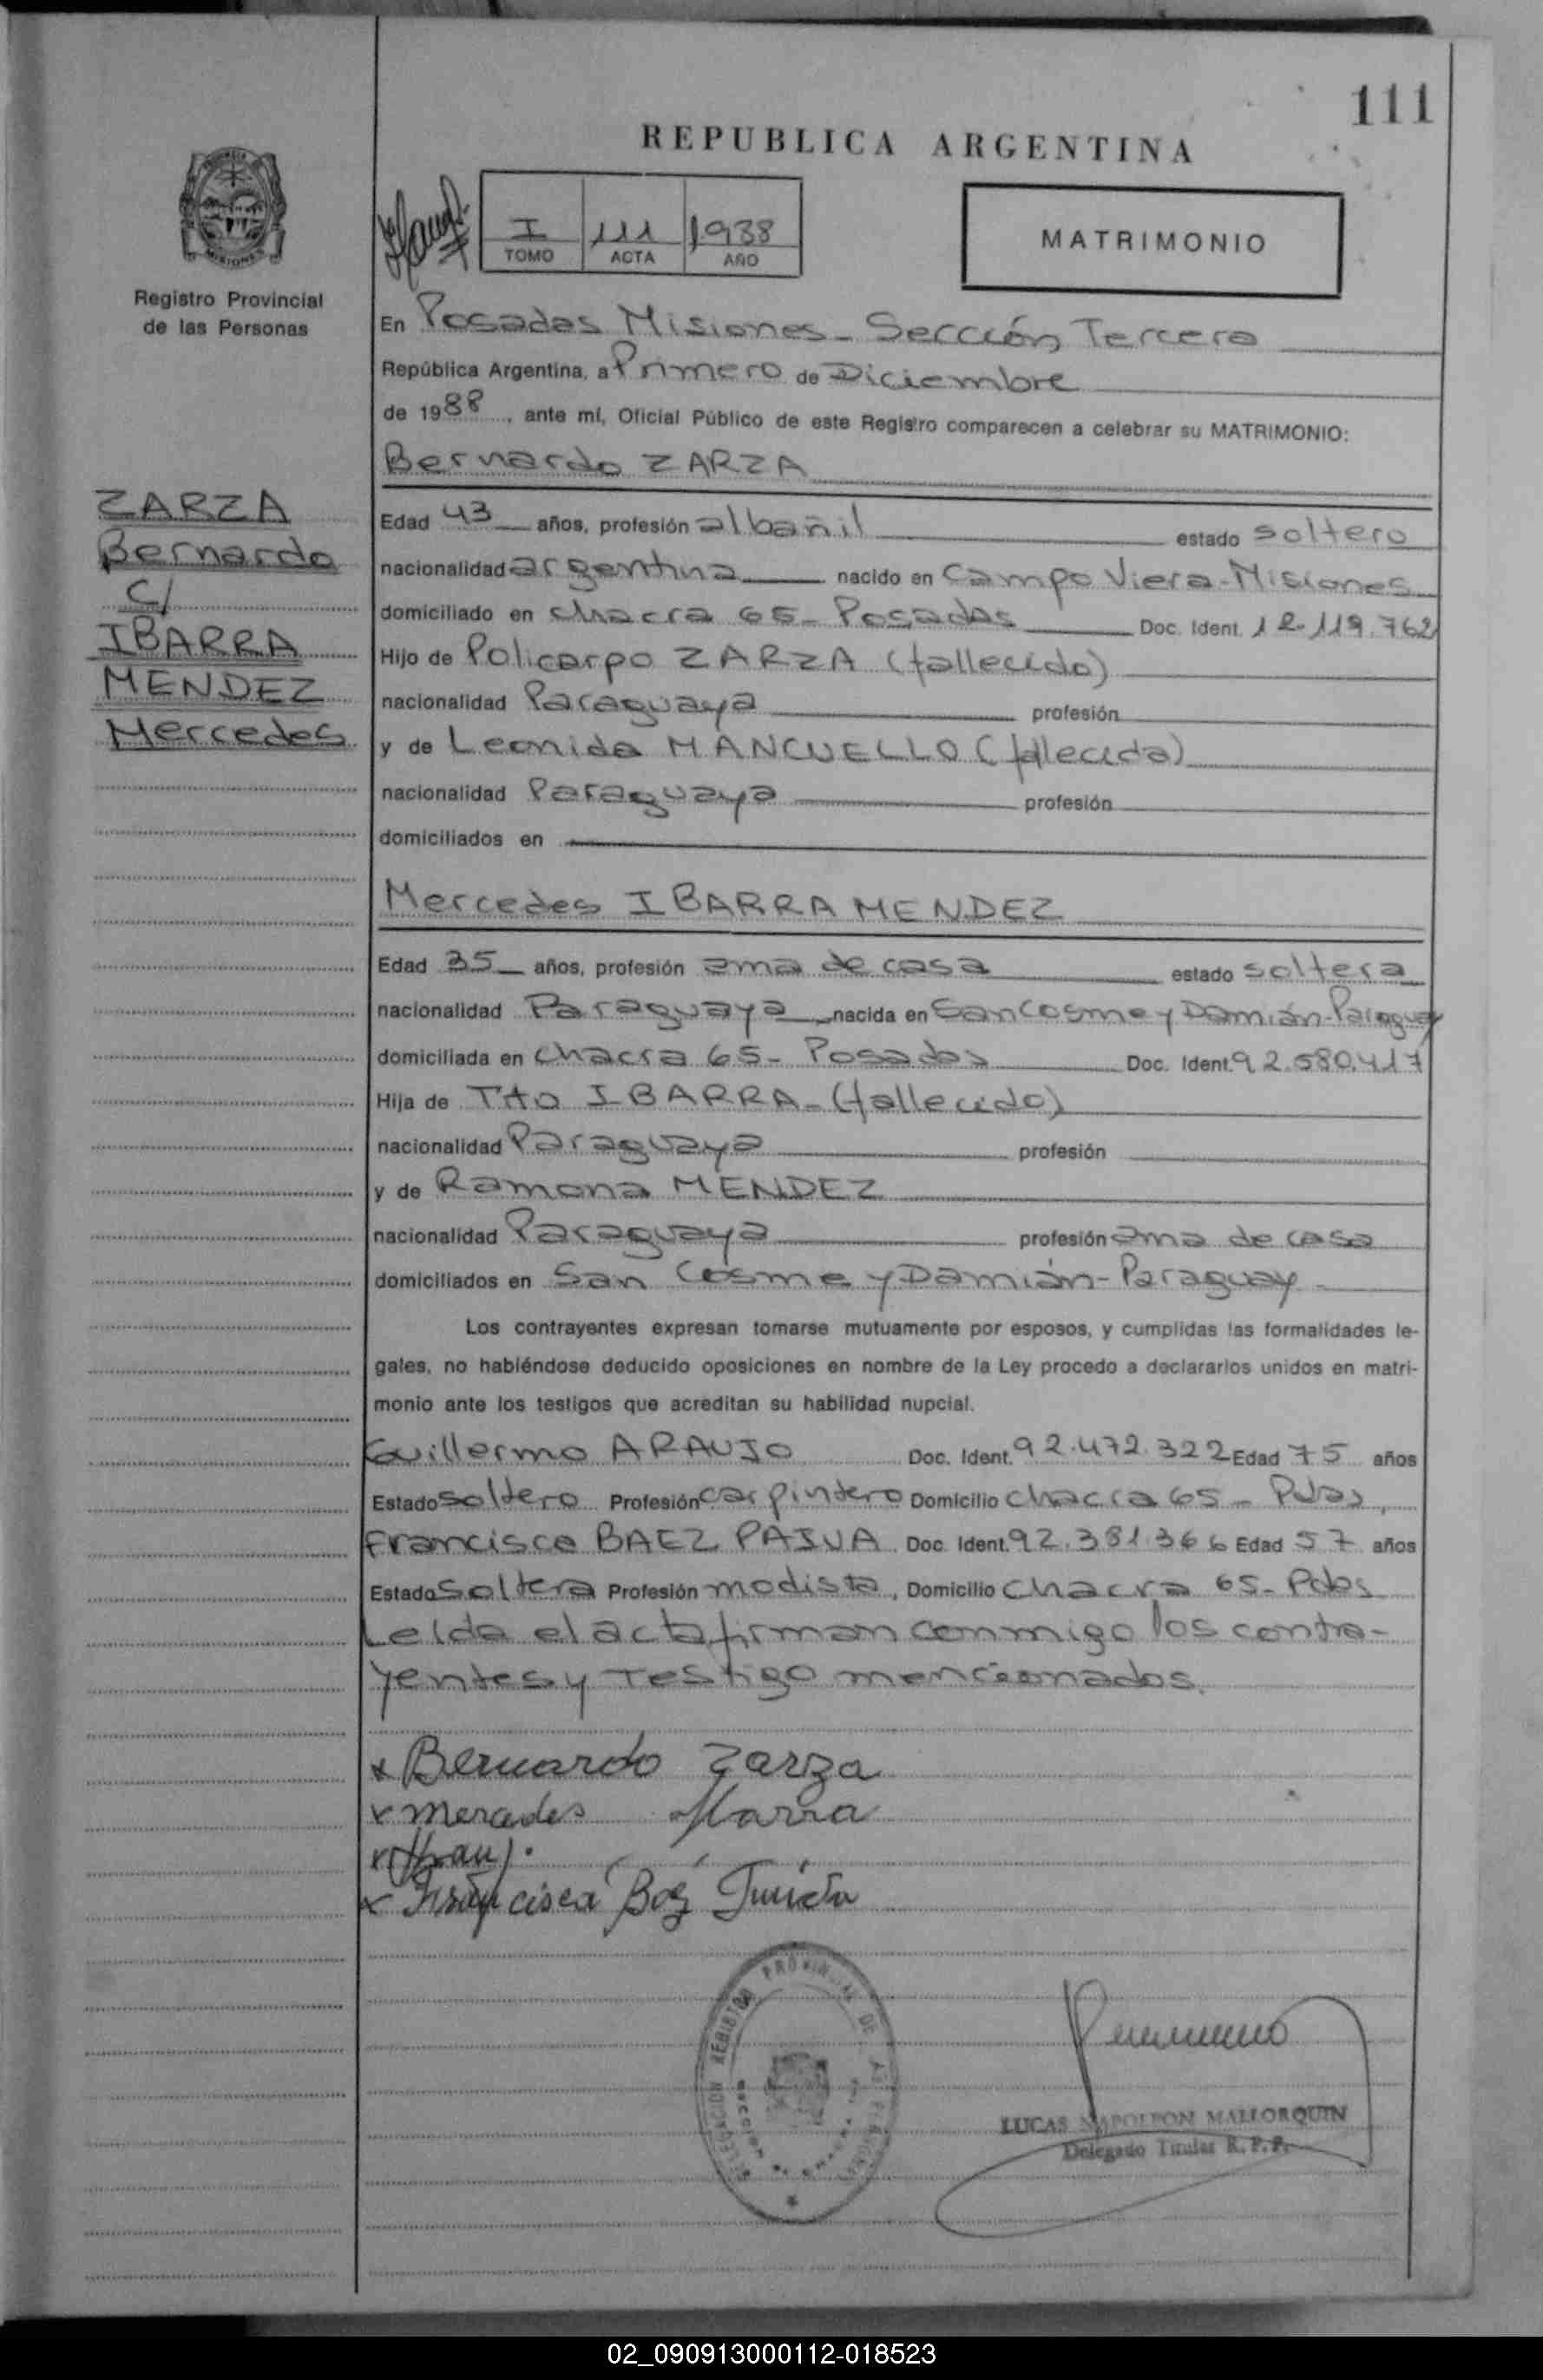 111
REPUBLICA ARGENTINA
I 111 1988
TOMO ACTA AÑO
MATRIMONIO
Registro Provincial
de las Personas
ZARZA
Bernardo
C/
IBARRA
MENDEZ
Mercedes
En Posadas Misiones - Sección Tercera
República Argentina, a Primero de Diciembre
de 1988, ante mí, Oficial Público de este Registro comparecen a celebrar su MATRIMONIO:
Bernardo ZARZA
Edad 43 años, profesión albañil estado soltero
nacionalidad argentina nacido en Campo Viera-Misiones
domiciliado en chacra 65- Posadas Doc. Ident. 12.119.762
Hijo de Policarpo ZARZA (fallecido)
nacionalidad Paraguaya profesión
y de Leonida MANCUELLO (fallecida)
nacionalidad Paraguaya profesión
domiciliados en
Mercedes IBARRA MENDEZ
Edad 35 años, profesión ama de casa estado soltera
nacionalidad Paraguaya nacida en San Cosme y Damián-Paraguay
domiciliada en chacra 65- Posadas Doc. Ident. 92.580.417
Hija de Tito IBARRA- (fallecido)
nacionalidad Paraguaya profesión
y de Ramona MENDEZ
nacionalidad Paraguaya profesión ama de casa
domiciliados en San Cosme y Damián-Paraguay
Los contrayentes expresan tomarse mutuamente por esposos, y cumplidas las formalidades le-
gales, no habiéndose deducido oposiciones en nombre de la Ley procedo a declararlos unidos en matri-
monio ante los testigos que acreditan su habilidad nupcial.
Guillermo ARAUJO Doc. Ident. 92.472.322 Edad 75 años
Estado soltero Profesión carpintero Domicilio chacra 65- Pdas,
Francisca BAEZ PAIVA Doc. Ident. 92.381.366 Edad 57 años
Estado soltera Profesión modista, Domicilio chacra 65- Pdas
Leída el acta firman conmigo los contra-
yentes y testigo mencionados.
x Bernardo Zarza
x mercedes Ibarra
x
x Francisca
DELEGACION REGISTRO PROVINCIAL DE LAS PERSONAS
LUCAS NAPOLEON MALLORQUIN
Delegado Titular R.P.P.
02_090913000112-018523